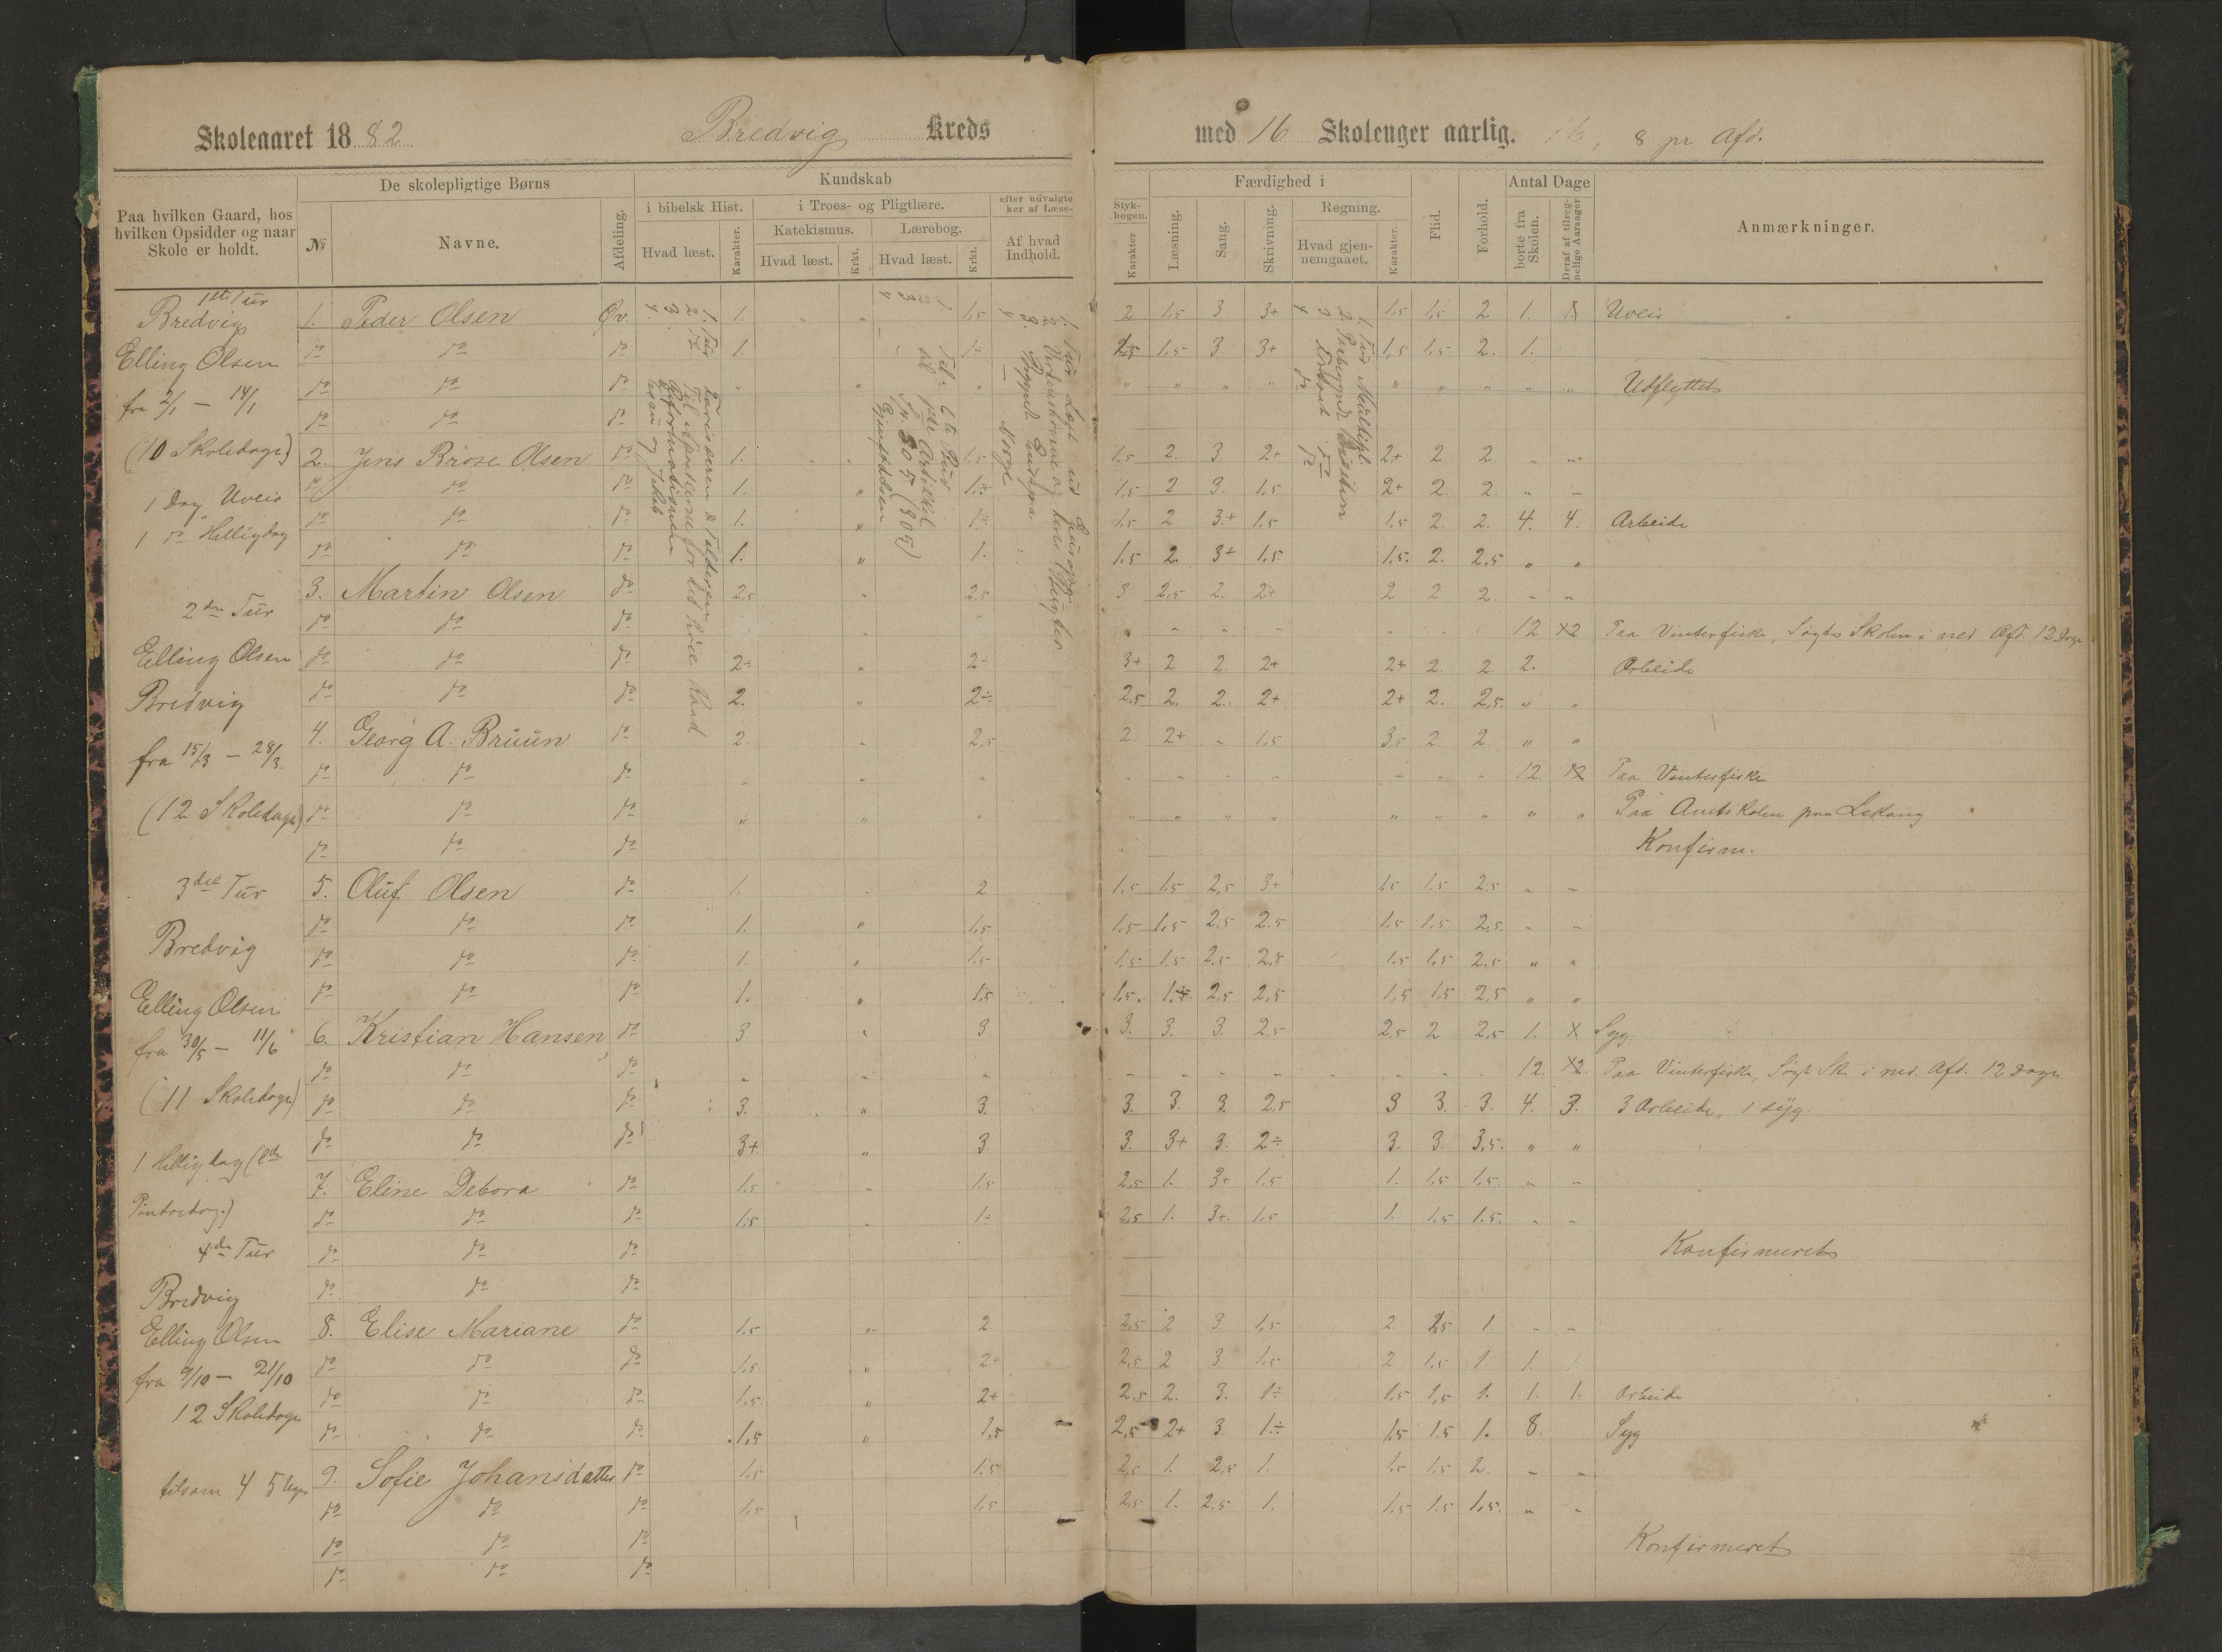 Skoleaaret 1882 Bredvig Kreds med 16 Skoleuger aarlig. 16, 8 pr Afd.
Paa hvilken Gaard, hos hvilken Opsidder og naar Skole er holdt.
De skolepligtige Børns
№
Navne.
Afdeling.
Kundskab
i bibelsk Hist.
Hvad læst.
Karakter.
i Troes- og Pligtlære.
Katekismus.
Hvad læst.
Krkt.
Lærebog.
Hvad læst.
Krkt.
efter udvalgte
ker af Læse-
Af hvad Indhold.
Styk-
bogen.
Karakter
Færdighed i
Læsning.
Sang.
Skrivning.
Regning.
Hvad gjen-
nemgaaet.
Karakter.
Flid.
Forhold.
Antal Dage
borte fra Skolen.
Deraf af tilreg-
nelige Aarsager
Anmærkninger.
1ste Tur
Bredvig
Elling Olsen
fra 2/1 — 14/1
(10 Skoledage)
1 Dag Uveir
1 do Helligdag
2den Tur
Elling Olsen
Bredvig
fra 15/3 — 28/3.
(12 Skoledage)
3die Tur
Bredvig
Elling Olsen
fra 30/5 — 11/6
(11 Skoledage)
1 Helligdag (2den
Pintsedag.)
4de Tur
Bredvig
Elling Olsen
fra 9/10 — 21/10
12 Skoledage
tilsam 45
1. Peder Olsen Øv. 1. " 1,5 2 1,5 3 3+ 1,5 1,5 2 1. Uveir
do do do 1. 1÷ 2,5 1,5 3. 3+ 1,5 1,5 2. 1.
do do do " " " " " " " " " " " Udflyttet
do do do
2. Jens Brose Olsen do 1. 1,5 1,5 2. 3 2+ 2+ 2 2 " "
do do do 1. " 1÷ 1,5 2 3. 1,5 2+ 2. 2. " "
do do do 1. " 1÷ 1,5 2 3+ 1,5 1,5 2. 2. 4. 4. Arbeide
do do do 1. " 1. 1,5 2. 3+ 1,5 1,5. 2. 2,5 " "
3. Martin Olsen do 2,5 " 2,5 3 2,5 2. 2+ 2 2 2. " "
do do do 12 12 Paa Vinterfiske, Søgte Skolen i ned Afd. 12 Dage
do do do 2÷ " 2÷ 3+ 2 2. 2+ 2+ 2. 2. 2. Arbeide
do do do 2. " 2÷ 2,5 2. 2. 2+ 2+ 2. 2,5. " "
4. Georg A. Brüün do 2. " 2,5 2. 2+ " 1,5 3,5 2 2 " "
do do do 12. 12 Paa Vinterfiske
do do do " " " " " " " " " " " " Paa Amtskolen paa Lekang
do do do Konfirm.
5. Oluf Olsen do 1. " 2 1,5 1,5 2,5 3+ 1,5 1,5 2,5 " "
do do do 1. " 1,5 1,5 1,5 2.5 2.5 1,5 1,5 2,5. " "
do do do 1. " 1,5 1,5 1,5 2,5 2,5 1,5 1,5 2,5 " "
do do do 1. " 1,5 1,5. 1÷ 2,5 2,5 1,5 1,5 2,5 " "
6. Kristian Hansen, do 3 " 3 3. 3. 3. 2,5 2,5 2 2,5 1. Syg.
do do do 12. 12. Paa Vinterfiske, Søgt Sk. i ned. Afd. 12 Dage
do do do 3. " 3. 3. 3. 3. 2,5 3 3. 3. 4. 3. 3 Arbeide, 1 syg.
do do do 3+ " 3 3. 3+ 3. 2÷ 3. 3. 3,5. " "
7. Eline Debora do 1,5 " 1,5 2,5 1. 3+ 1,5 1. 1,5 1,5. " "
do do do 1,5 " 1÷ 2,5 1. 3+. 1,5 1. 1,5 1,5. " "
do do do Konfirmeret
do do do
8. Elise Mariane do 1,5 " 2 2,5 2 3 1,5 2 2,5 1. " "
do do do 1,5 " 2+ 2,5 2 3 1,5 2 1,5 1. 1.
do do do 1,5 " 2+ 2,5 2. 3. 1÷ 1,5 1,5 1. 1. 1. Arbeide
do do do 1,5 " 1,5 2,5 2+ 3. 1÷ 1,5 1,5 1. 8. Syg
9. Sofie Johansdatter do 1,5 1,5 2,5 1. 2,5 1. 1,5 1,5 2 " "
do do do 1,5 1,5 2,5 1. 2,5 1. 1,5 1.5 1,5. " "
do do do Konfirmeret
do do do